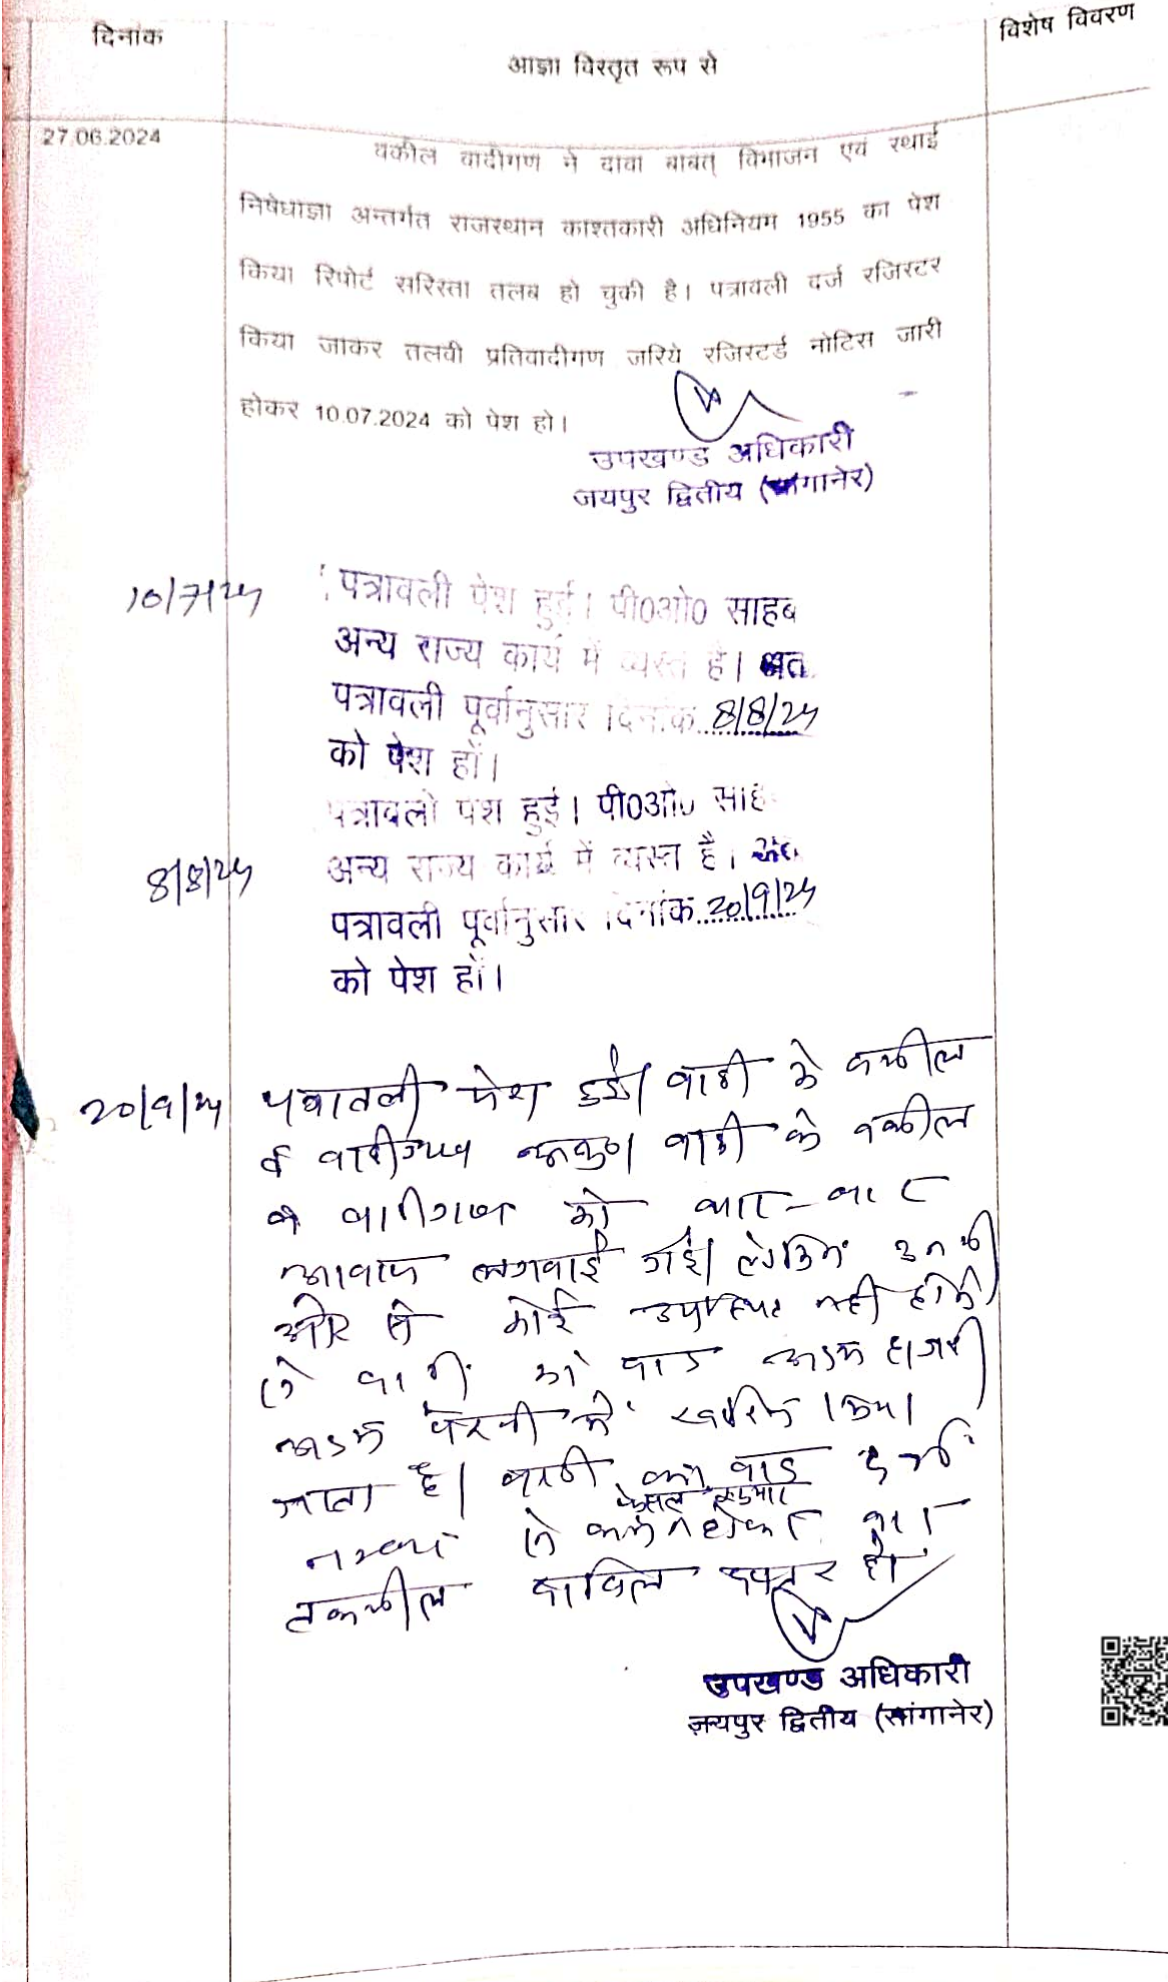 दिनांक
आज्ञा विस्तृत रूप से
विशेष विवरण
27.06.2024
वकील वादीगण ने दावा बाबत् विभाजन एवं स्थाई
निषेधाज्ञा अन्तर्गत राजस्थान काश्तकारी अधिनियम 1955 का पेश
किया रिपोर्ट सरिस्ता तलब हो चुकी है। पत्रावली दर्ज रजिस्टर
किया जाकर तलवी प्रतिवादीगण जरिये रजिस्टर्ड नोटिस जारी
होकर 10.07.2024 को पेश हो।
उपखण्ड अधिकारी
जयपुर द्वितीय (सांगानेर)
10/7/24
पत्रावली पेश हुई। पी0ओ0 साहब
अन्य राज्य कार्य में व्यस्त है। अत
पत्रावली पूर्वानुसार दिनांक 8/8/24
को पेश हों।
पत्रावली पेश हुई। पी0ओ0 साह
8/8/24
अन्य राज्य कार्य में व्यस्त है। अतः
पत्रावली पूर्वानुसार दिनांक 20/9/24
को पेश हों।
20/9/24
पत्रावली पेश हुई। वादी के वकील
व वादीगण वादी के वकील
व वादीगण को बार-बार
आवाज लगवाई गई। लेकिन उनकी
ओर से कोई उपस्थित नहीं होने
से वादी का वाद अदम हाजरी
अदम पैरवी में खारिज किया
जाता है। वादी का वाद दर्ज
फैसल शुमार
नम्बर से कम होकर बाद
तकमील दाखिल दफ्तर हो।
उपखण्ड अधिकारी
जयपुर द्वितीय (सांगानेर)